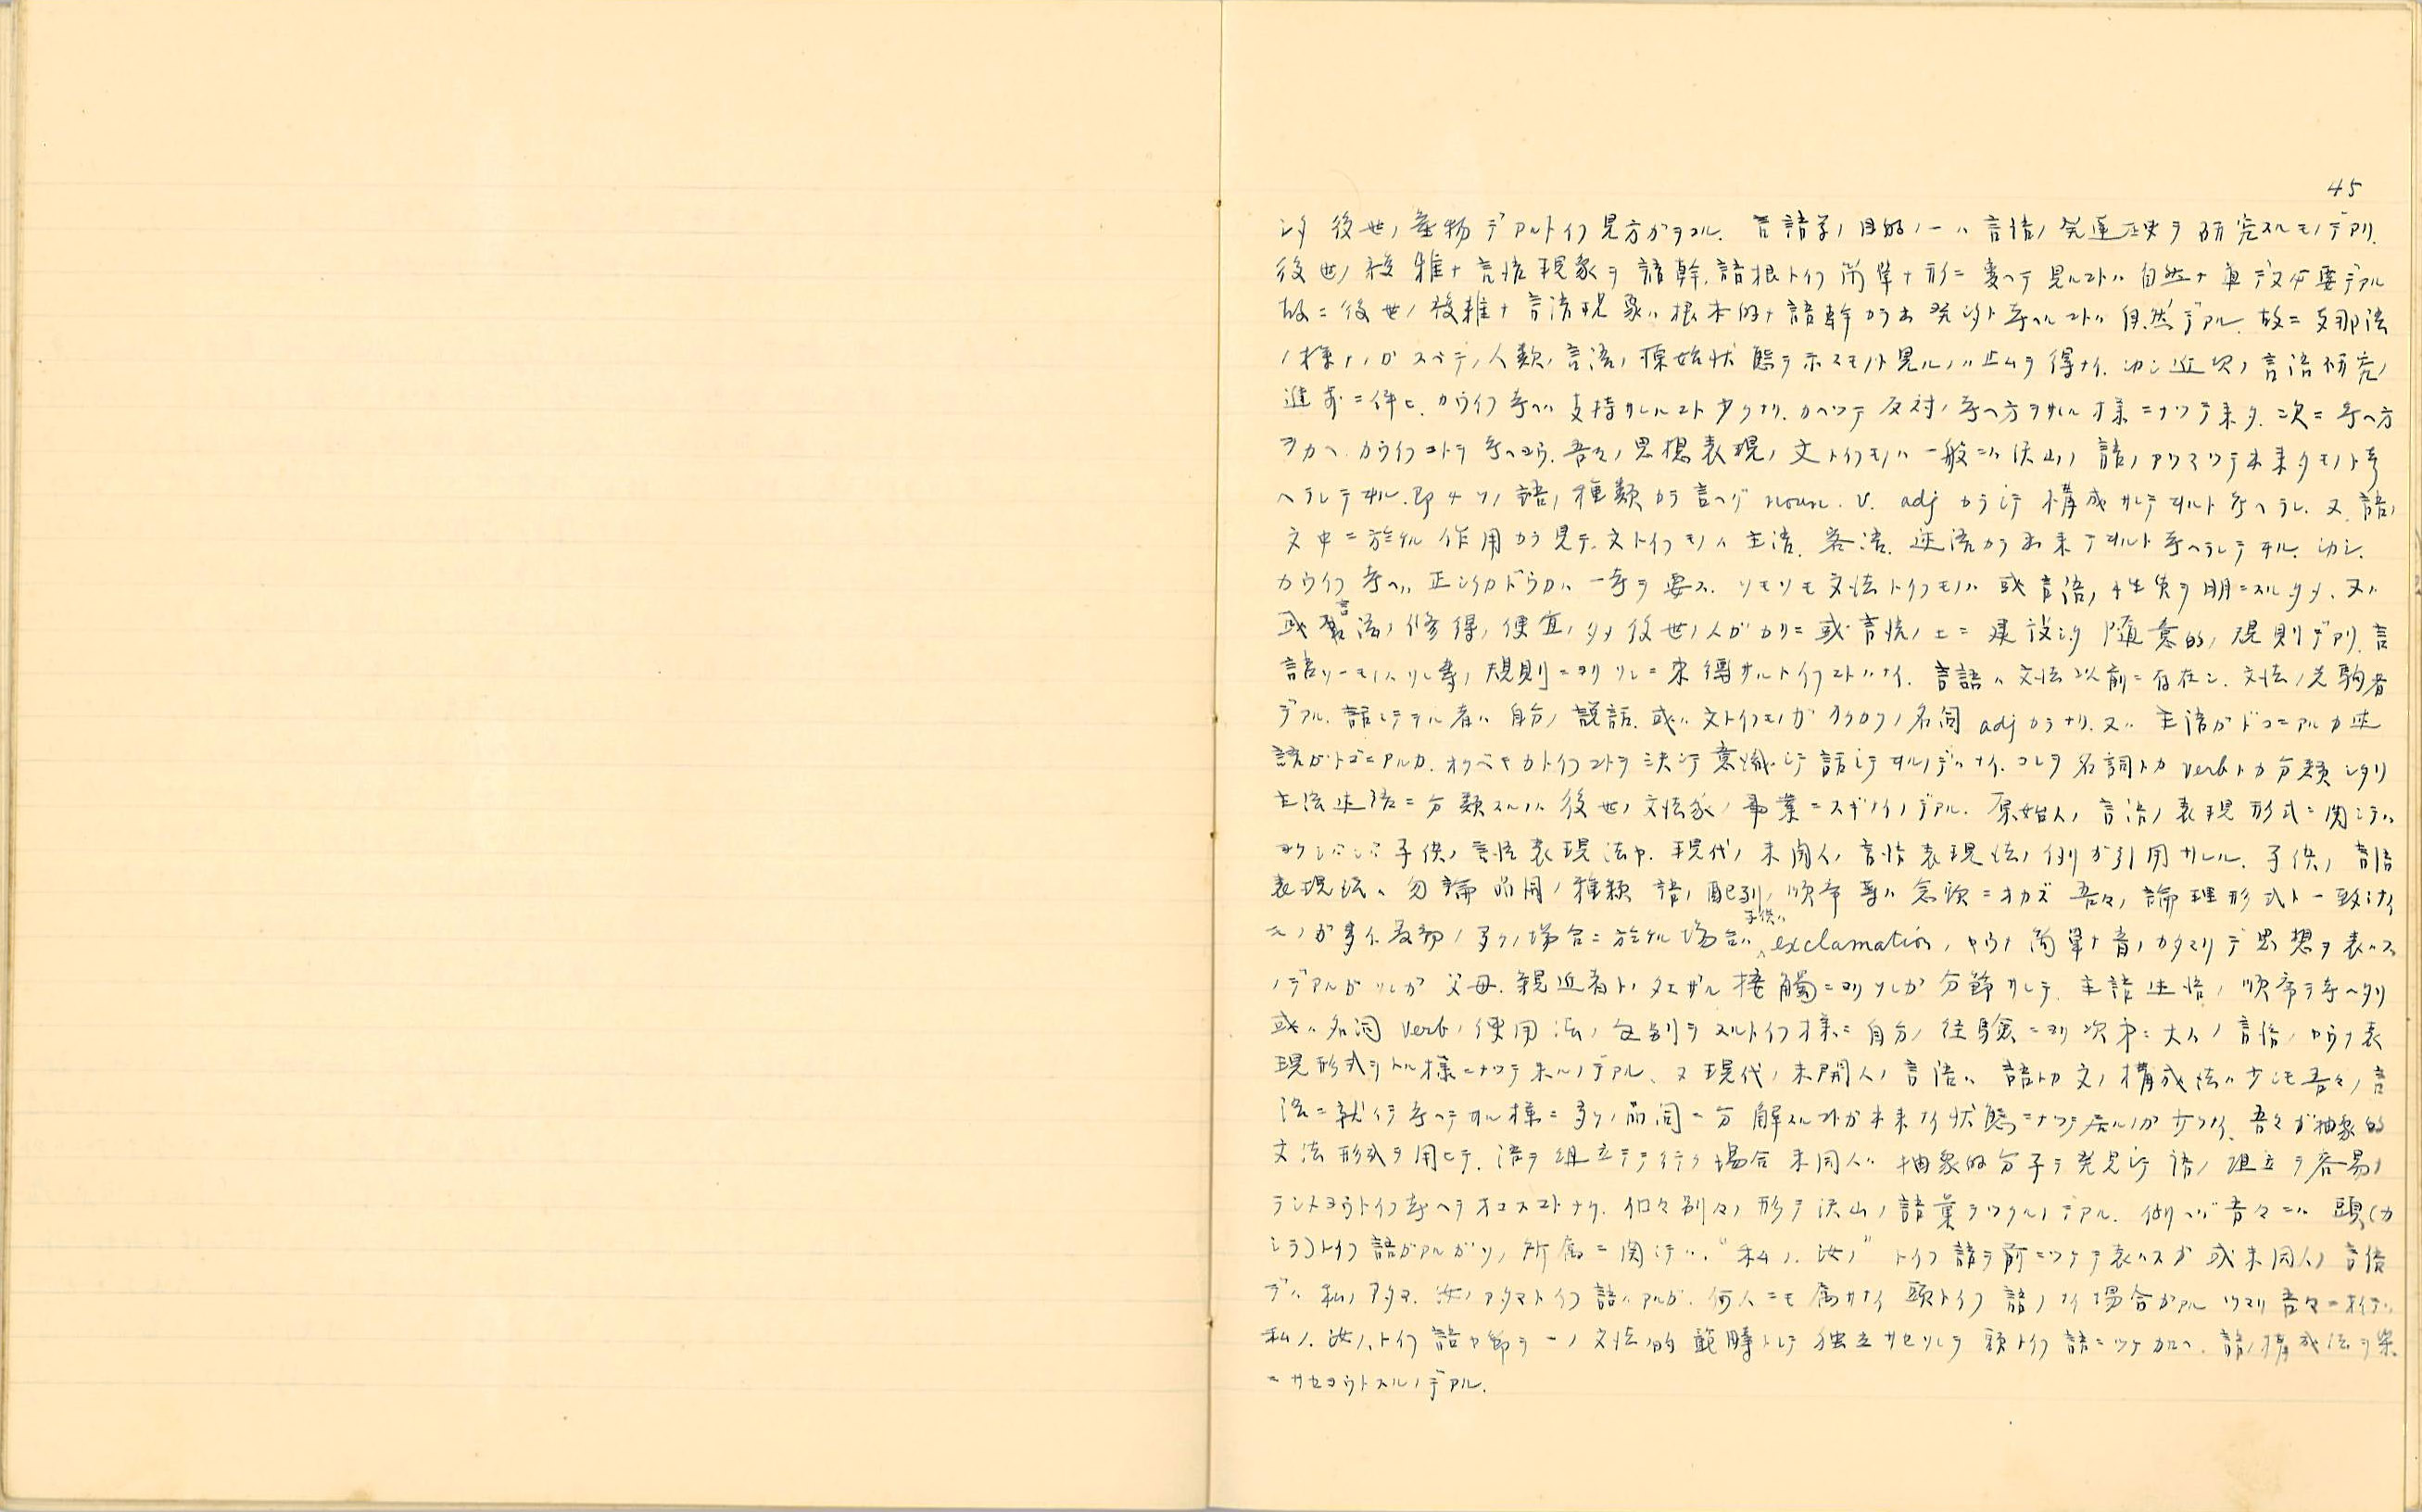 45
シタ 後世ノ産物デアルトイフ見方がヲコル. 言語学ノ目的ノ一ハ言語ノ発達歴史ヲ研究スルモノデアリ.
後世ノ複雑ナ言語現象ヲ語幹.語根トイフ簡単ナ形ニ変ヘテ見ルコトハ自然ナ デ又必要デアル
故ニ後世ノ複雑ナ言語現象ハ根本的ナ語幹カラ出発シタト考ヘルコトハ自然デアル. 故ニ支那語
ノ様ナノガスベテノ人類ノ言語ノ原始状態ヲ示スモノト見ルノハ止ムヲ得ナイ. 然シ近次ノ言語研究ノ
進歩ニ伴ヒ.カウイフ考ヘハ支持サレルコト少クナリ.カヘツテ反対ノ考ヘ方ヲサレル様ニナツテ来タ.次ニ考ヘ方
ヲカヘ.カウイフコトヲ考ヘヨウ.吾々ノ思想表現ノ文トイフモノハ一般ニハ沢山ノ語ノアツマツテ出来タモノト考
ヘラレテヰル.即チソノ語ノ種類カラ言ヘバ noun. v. adj カラシテ構成サレテヰルト考ヘラレ.又.語ノ
文中ニ於ケル作用カラ見テ.文トイフモノハ主語.客語.述語カラ出来テヰルト考ヘラレテヰル.然シ.
カウイフ考ヘハ正シイカドウカハ一考ヲ要ス.ソモソモ文法トイフモノハ或言語ノ性質ヲ明ニスルタメ、又ハ
或言語ノ修得ノ便宜ノタメ後世ノ人ガカリニ或言語ノ上ニ建設シタ随意的ノ規則デアリ.言
語ソノモノハソレ等ノ規則ニヨリソレニ束縛サルトイフコトハナイ. 言語ハ文法以前ニ存在シ.文法ノ先駆者
デアル.話シテヰル者ハ自分ノ説話.或ハ文トイフモノガカクカクノ名詞 adj カラナリ.又ハ主語がドコニアルカ述
語がドコニアルカ.オクベキカトイフコトヲ決シテ意識シテ話シテヰルノデハナイ.コレヲ名詞トカ verb トカ分類シタリ
主語述語ニ分類スルノハ後世ノ文法家ノ事業ニスギナイノデアル. 原始人ノ言語ノ表現形式ニ関シテハ
ヨクシバシバ子供ノ言語表現法ヤ.現代ノ未開人ノ言語表現法ノ例が引用サレル.子供ノ言語
表現法ハ勿論品詞ノ種類 語ノ配列ノ順序等ハ念頭ニオカズ吾々ノ論理形式ト一致シナイ
モノが多イ 最初ノ多クノ場合ニ於ケル場合ハ子供ハ exclamation ノヤウナ簡単ナ音ノカタマリデ思想ヲ表ハス
ノデアルがソレが父母.親近者トノタエザル接触ニヨリソレが分節サレテ.主語述語ノ順序ヲ考ヘタリ
或ハ名詞 verb ノ使用法ノ区別ヲスルトイフ様ニ自分ノ経験ニヨリ次第ニ大人ノ言語ノヤウナ表
現形式ヲトル様ニナツテ来ルノデアル、又現代ノ未開人ノ言語ハ語トカ文ノ構成法ハ少シモ吾々ノ言
語ニ就イテ考ヘテヰル様ニ多クノ品詞ニ分解スルコトが出来ナイ状態ニナツテ居ルノが少クナイ.吾々が抽象的
文法形式ヲ用ヒテ.語ヲ組立テテ行ク場合未開人ハ抽象的分子ヲ発見シテ語ノ組立ヲ容易ナ
ラシメヨウトイフ考ヘヲオコスコトナク.個々別々ノ形デ沢山ノ語彙ヲツクルノデアル.例ヘバ吾々ニハ頭(カ
シラ)トイフ語がアルがソノ所属ニ関シテハ."私ノ.汝ノ"トイフ語ヲ前ニツケテ表ハスが或未開人ノ言語
デハ私ノアタマ.汝ノアタマトイフ語ハアルが.何人ニモ属サナイ頭トイフ語ノナイ場合がアル ツマリ吾々ニオイテハ
私ノ.汝ノ.トイフ語ヤ節ヲ一ノ文法的範疇トシテ独立サセソレヲ頭トイフ語ニツケ加ヘ.語ノ構成法ヲ楽
ニサセヨウトスルノデアル.